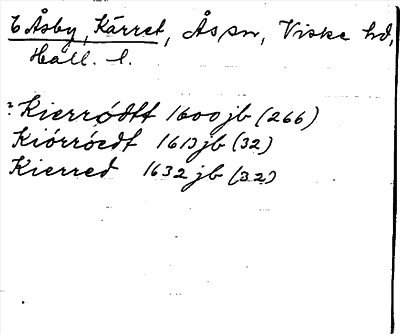 t Åsby, Kärret, Ås sn, Viske hd,
Hall. l.
? Kierrødtt 1600 jb (266)
Kiórróedt 1613 jb (32)
Kierred 1632 jb (32)